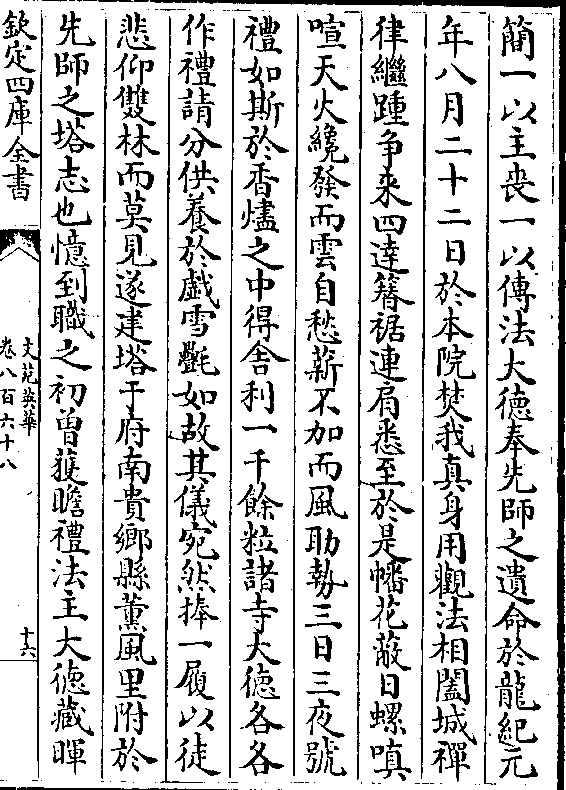 簡一以主喪一以傳法大德奉先師之遺命於龍紀元
年八月二十二日於本院焚我真身用觀法相闔城禪
律繼踵争來四達簪裾連肩悉至於是幡花蔽日螺嗔
喧天火纔發而雲自愁薪不加而風助勢三日三夜號
禮如斯於香燼之中得舍利一千餘粒諸寺大德各各
作禮請分供養於戯雪氎如故其儀宛然捧一履以徒
悲仰雙林而莫見遂建塔于府南貴鄉縣薰風里附於
先師之塔志也憶到職之初曽獲瞻禮法主大徳藏暉
欽定四庫全書
文苑英華
卷八百六十八
十六